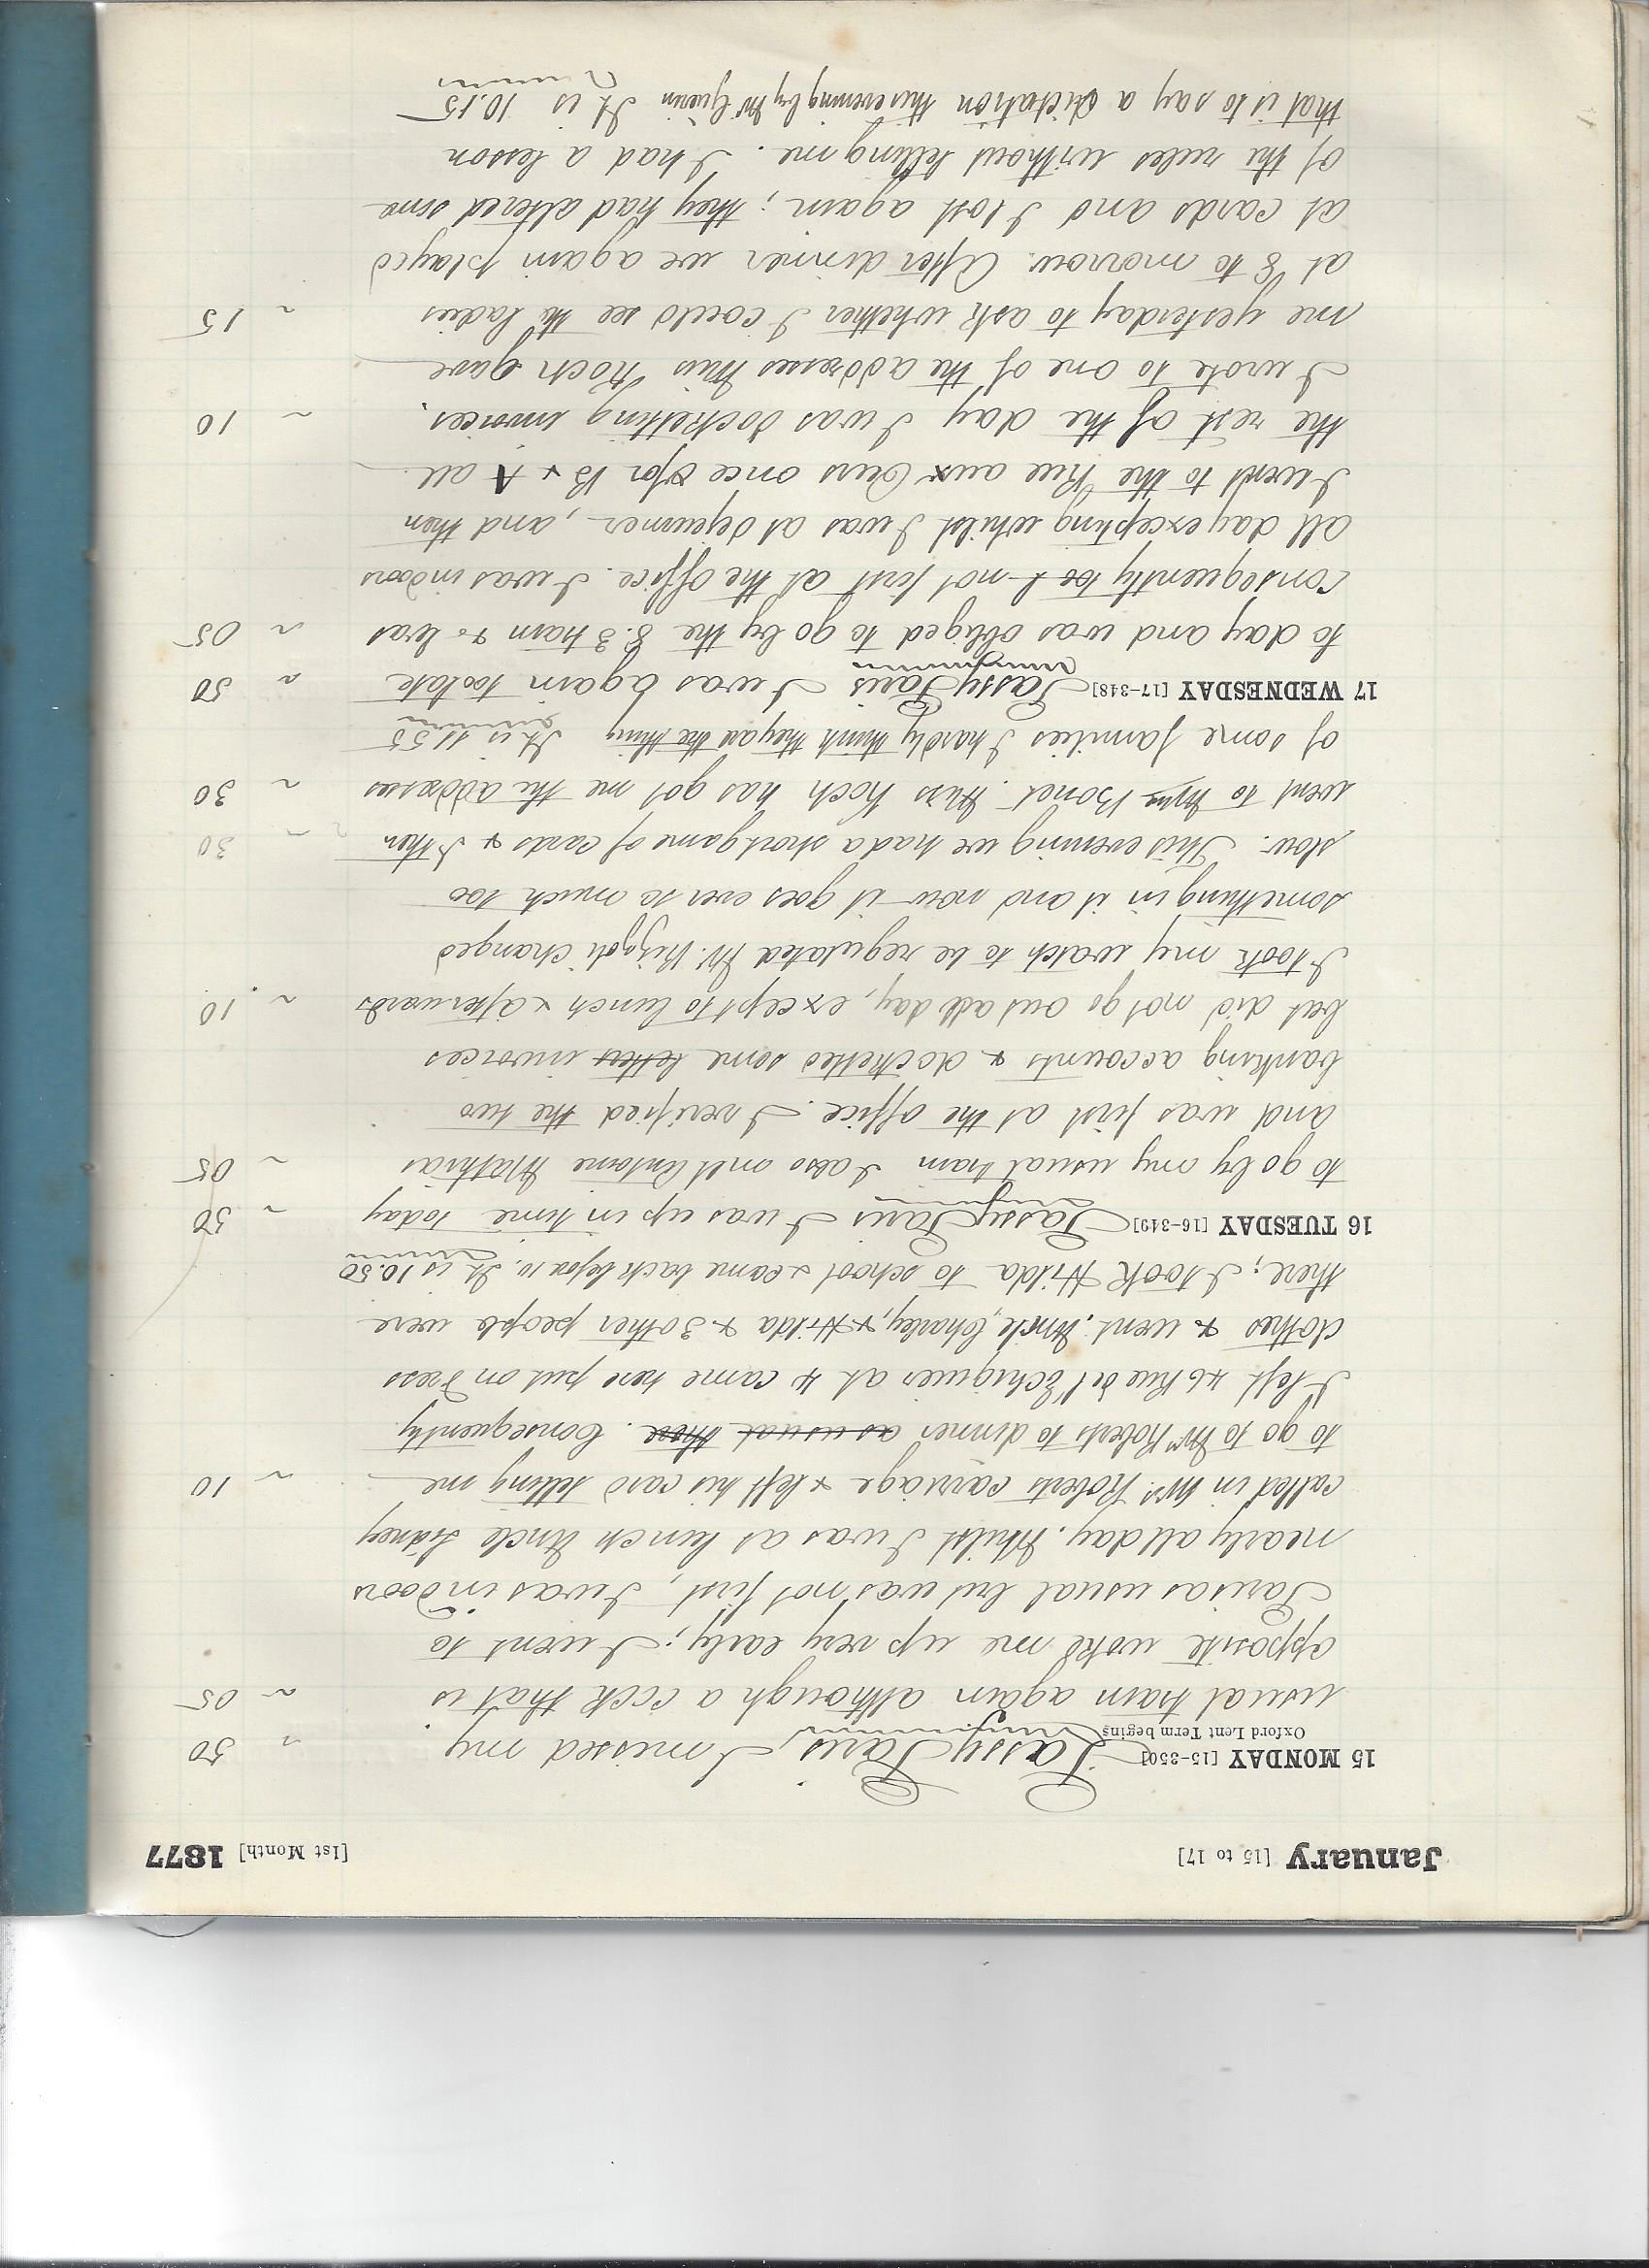 January [15 to 17] [1st Month] 1877
15 MONDAY [15-350] Passy Paris, I missed my " 50
Oxford Lent Term begins
usual train again although a cock that is ~ 05
opposite woke me up very early; I went to
Paris as usual but was not first, I was indoors
nearly all day. Whilst I was at lunch Uncle Sidney
called in Mrs Roberts carriage & left his card telling me ~ 10
to go to Mrs Roberts to dinner as usual there. Consequently
I left 46 Rue de l'Echiquier at 4 came here put on dress
clothes & went. Uncle, Charley, & Hilda & 3 other people were
there; I took Hilda to school & came back before 10. It is 10.50
16 TUESDAY [16-349] Passy Paris I was up in time today ~ 50
to go by my usual train I also met Antoine Mathias ~ 05
and was first at the office. I verified the two
banking accounts & docketted some letters invoices
but did not go out all day, except to lunch & afterwards ~ 10
I took my watch to be regulated Mr. Rizzoli changed
something in it and now it goes ever so much too
slow. This evening we had a short game of cards & I then ~ 30
went to Mme Bonet. Miss Koch has got me the addresses ~ 30
of some families I hardly think they are the thing It is 11.55
17 WEDNESDAY [17-348] Passy Paris I was again too late ~ 50
to day and was obliged to go by the 8.3 train & was ~ 05
consequently too not first at the office. I was indoors
all day excepting whilst I was at dejeuner, and then
I went to the Rue aux Ours once for B & A all
the rest of the day I was docketting invoices. ~ 10
I wrote to one of the addresses Miss Koch gave
me yesterday to ask whether I could see the ladies ~ 15
at 8 to morrow. After dinner we again played
at cards and I lost again; they had altered some
of the rules without telling me. I had a lesson
that is to say a dictation this evening by Mr Guerin It is 10.15